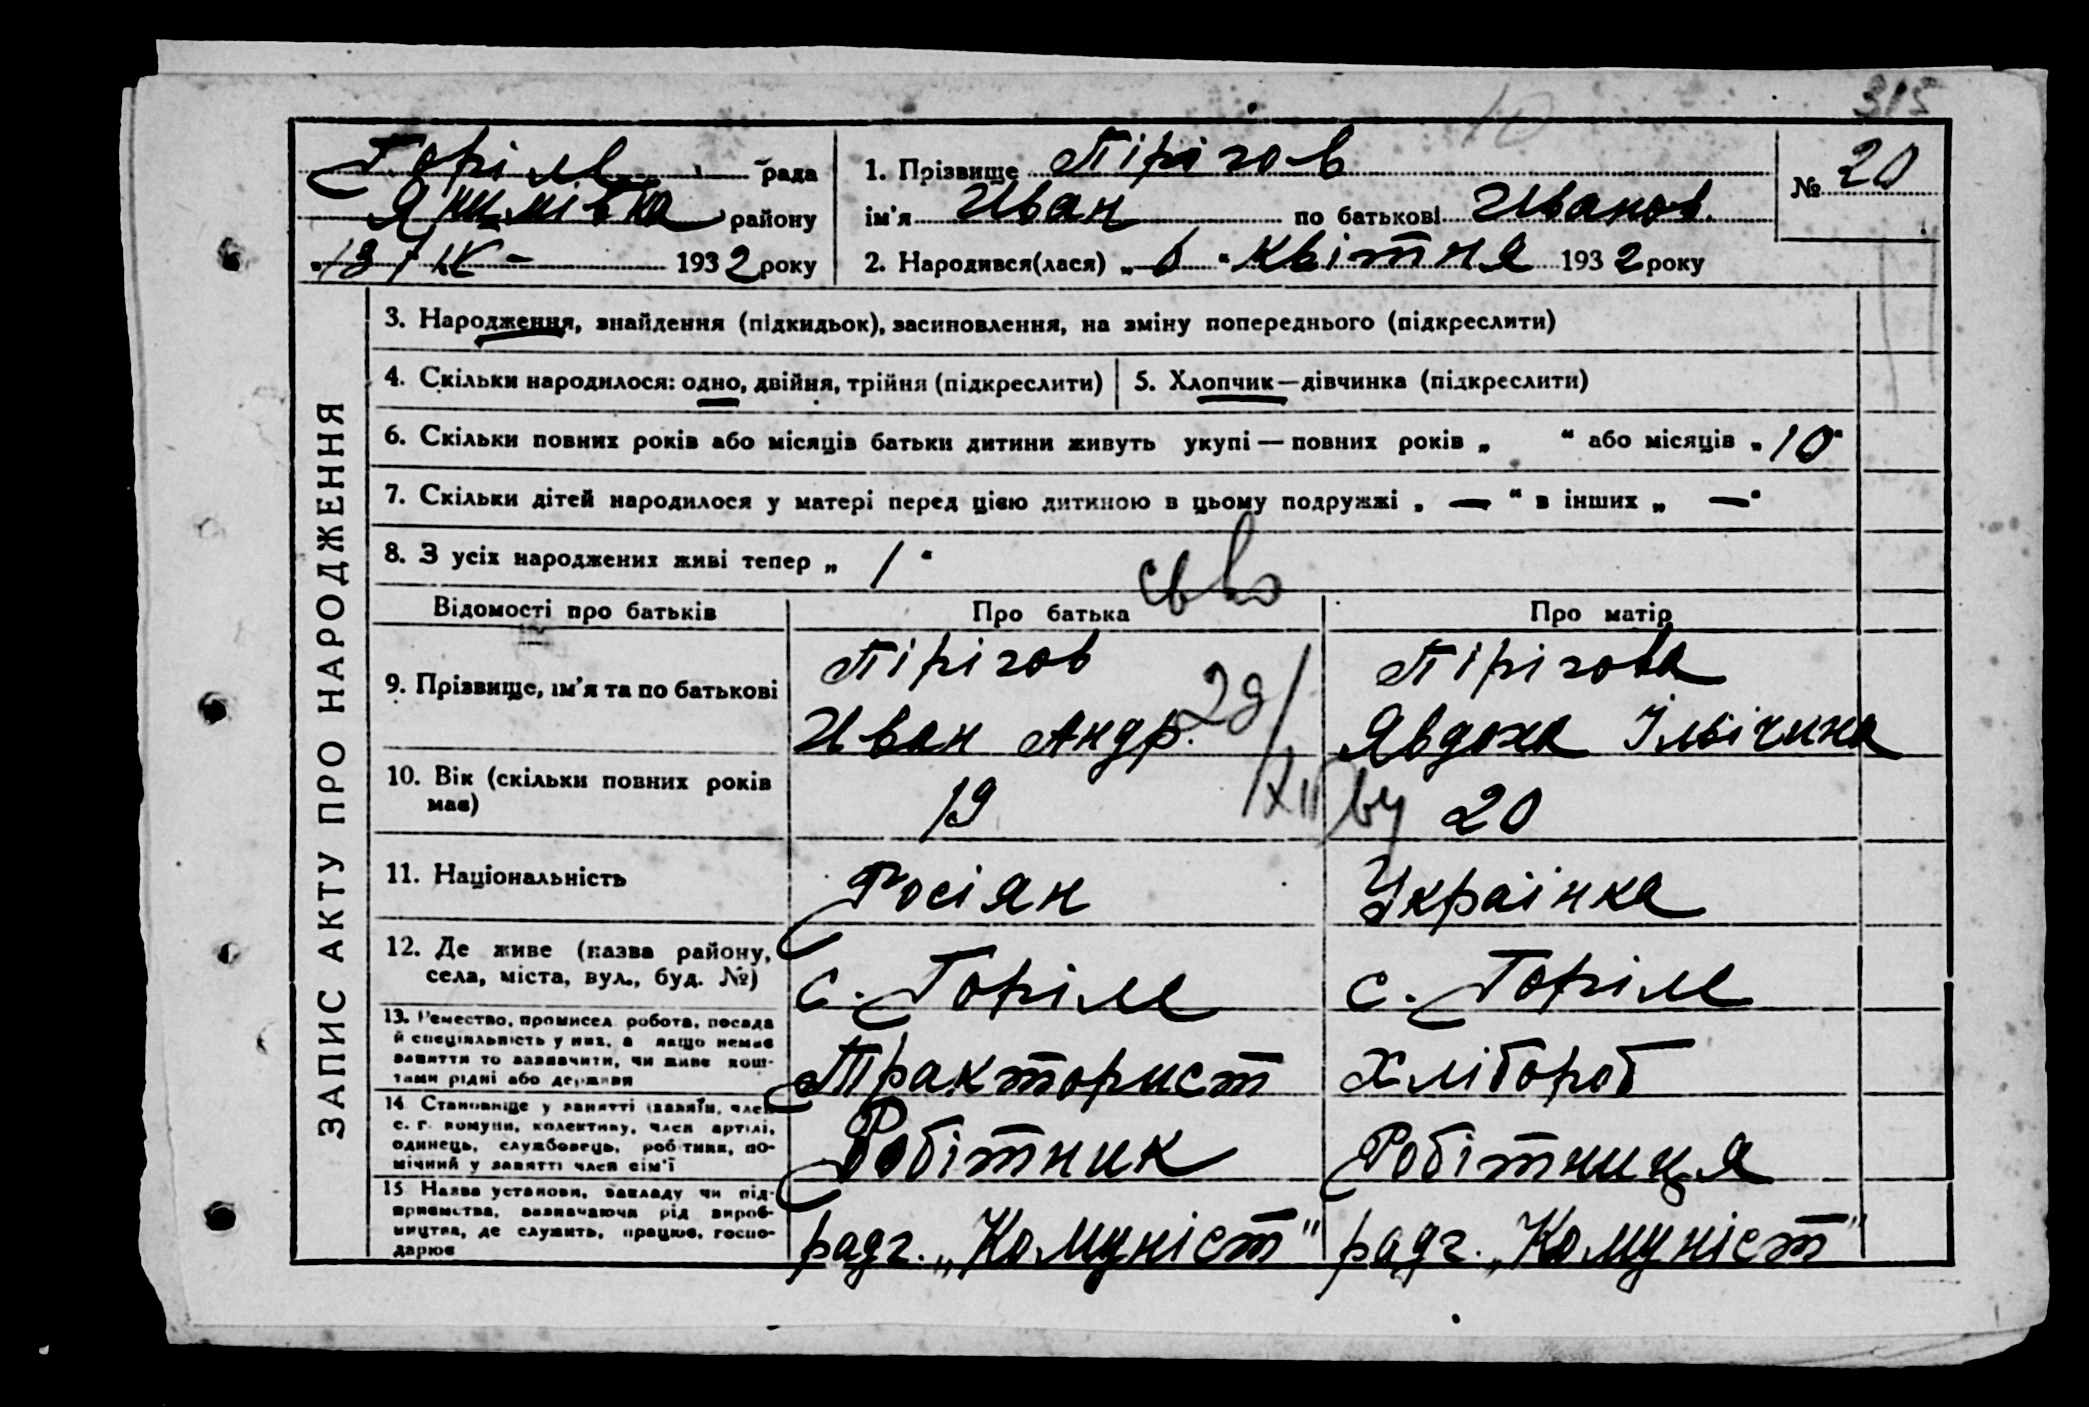 315
10
Горілв рада
Якимівка району
"13/IV - 1932 року
1. Прізвище Пірігов
ім'я Иван по батькові Иванов.
2. Народився(лася) „6" Квітня 1932 року
№ 20
ЗАПИС АКТУ ПРО НАРОДЖЕННЯ
3. Народження, знайдення (підкидьок), засиновлення, на зміну попереднього (підкреслити)
4. Скільки народилося: одно, двійня, трійня (підкреслити)
5. Хлопчик—дівчинка (підкреслити)
6. Скільки повних років або місяців батьки дитини живуть укупі — повних років „ " або місяців „10"
7. Скільки дітей народилося у матері перед цією дитиною в цьому подружжі „ — " в інших „ — "
8. З усіх народжених живі тепер „ 1 "
св во
Відомості про батьків
Про батька
Про матір
9. Прізвище, ім'я та по батькові
Пірігов
Иван Андр.
Пірігова
Явдоха Ільічина
29/XII
10. Вік (скільки повних років
має)
19
20
11. Національність
Росіян
Украінка
12. Де живе (назва району,
села, міста, вул., буд. №)
с. Горіле
с. Горіле
13. Ремество, промисел робота, посада
й спеціяльність у них, а якщо немає
заняття то зазначити, чи живе кош-
тами рідні або держави
Тракторист
Хлібороб
14 Становище у занятті (хазяїн, член
с. г. комуни, колективу, член артілі,
одинець, службовець, робітник, по-
мічний у занятті член сім'ї
Робітник
Робітниця
15 Назва установи, закладу чи під-
приємства, визначаючи рід вироб-
ництва, де служить, працює, госпо-
дарює
радг. „Комуніст"
радг. „Комуніст"